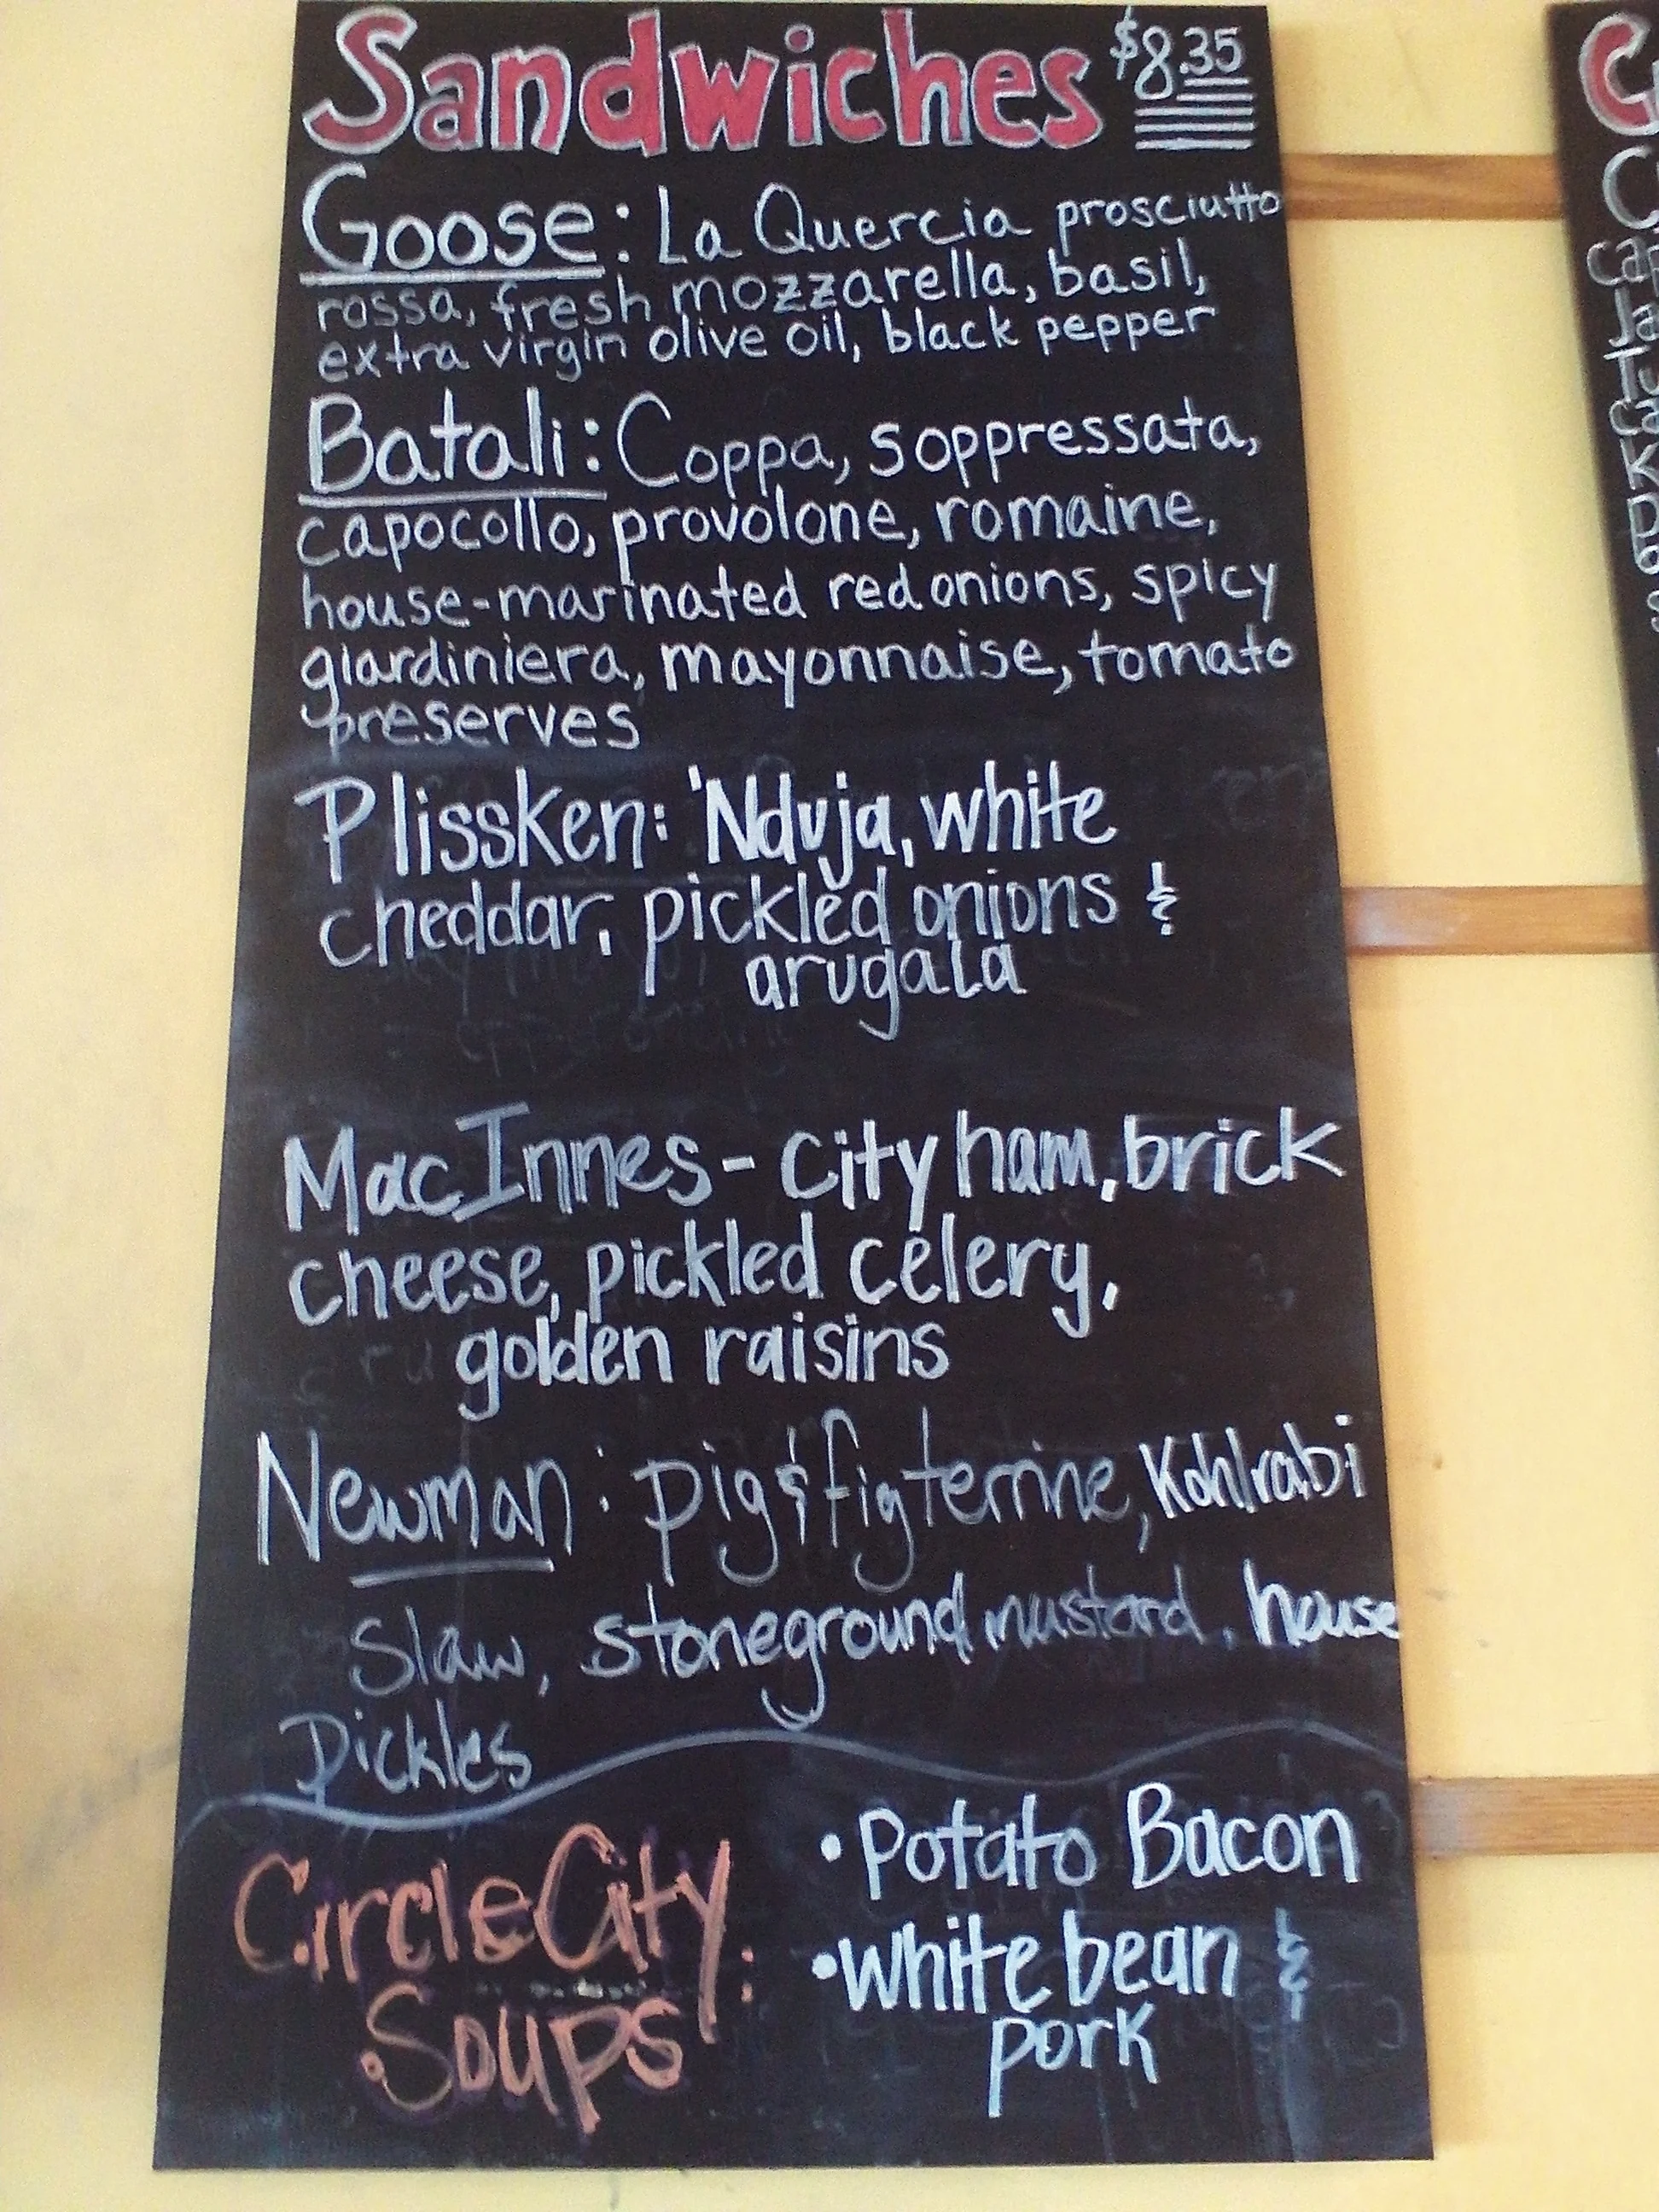 Sandwiches $8.35
Goose: La Quercia prosciutto
rossa, fresh mozzarella, basil,
extra virgin olive oil, black pepper
Batali: Coppa, soppressata,
capocollo, provolone, romaine,
house-marinated red onions, spicy
giardiniera, mayonnaise, tomato
preserves
Plissken: 'Nduja, white
cheddar, pickled onions &
arugala
MacInnes - city ham, brick
cheese, pickled celery,
golden raisins
Newman: pig & fig terrine, Kohlrabi
Slaw, stoneground mustard, house
Pickles
Circle City:
Soups
• Potato Bacon
• White bean &
pork